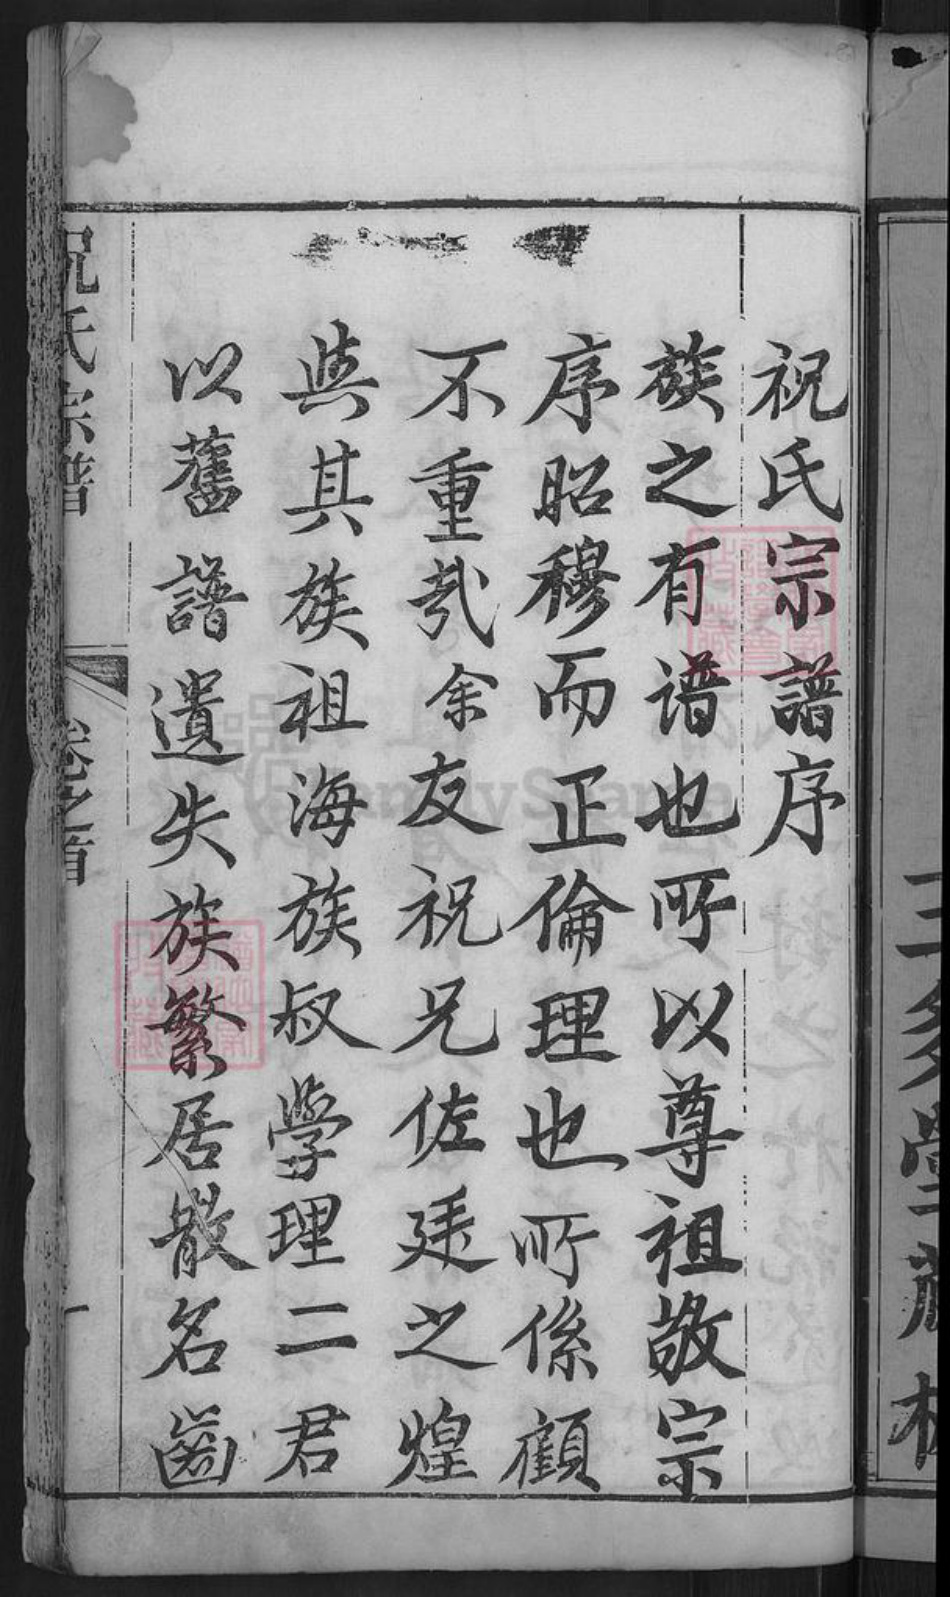 祝氏宗譜序
族之有谱也所以尊祖敬宗
序昭穆而正倫理也所係顧
不重哉余友祝兄佐廷之煌
與其族祖海族叔学理二君
以舊譜遺失族繁居散名齒
祝氏宗譜
卷之首
一
三多堂藏板
FamilySearch